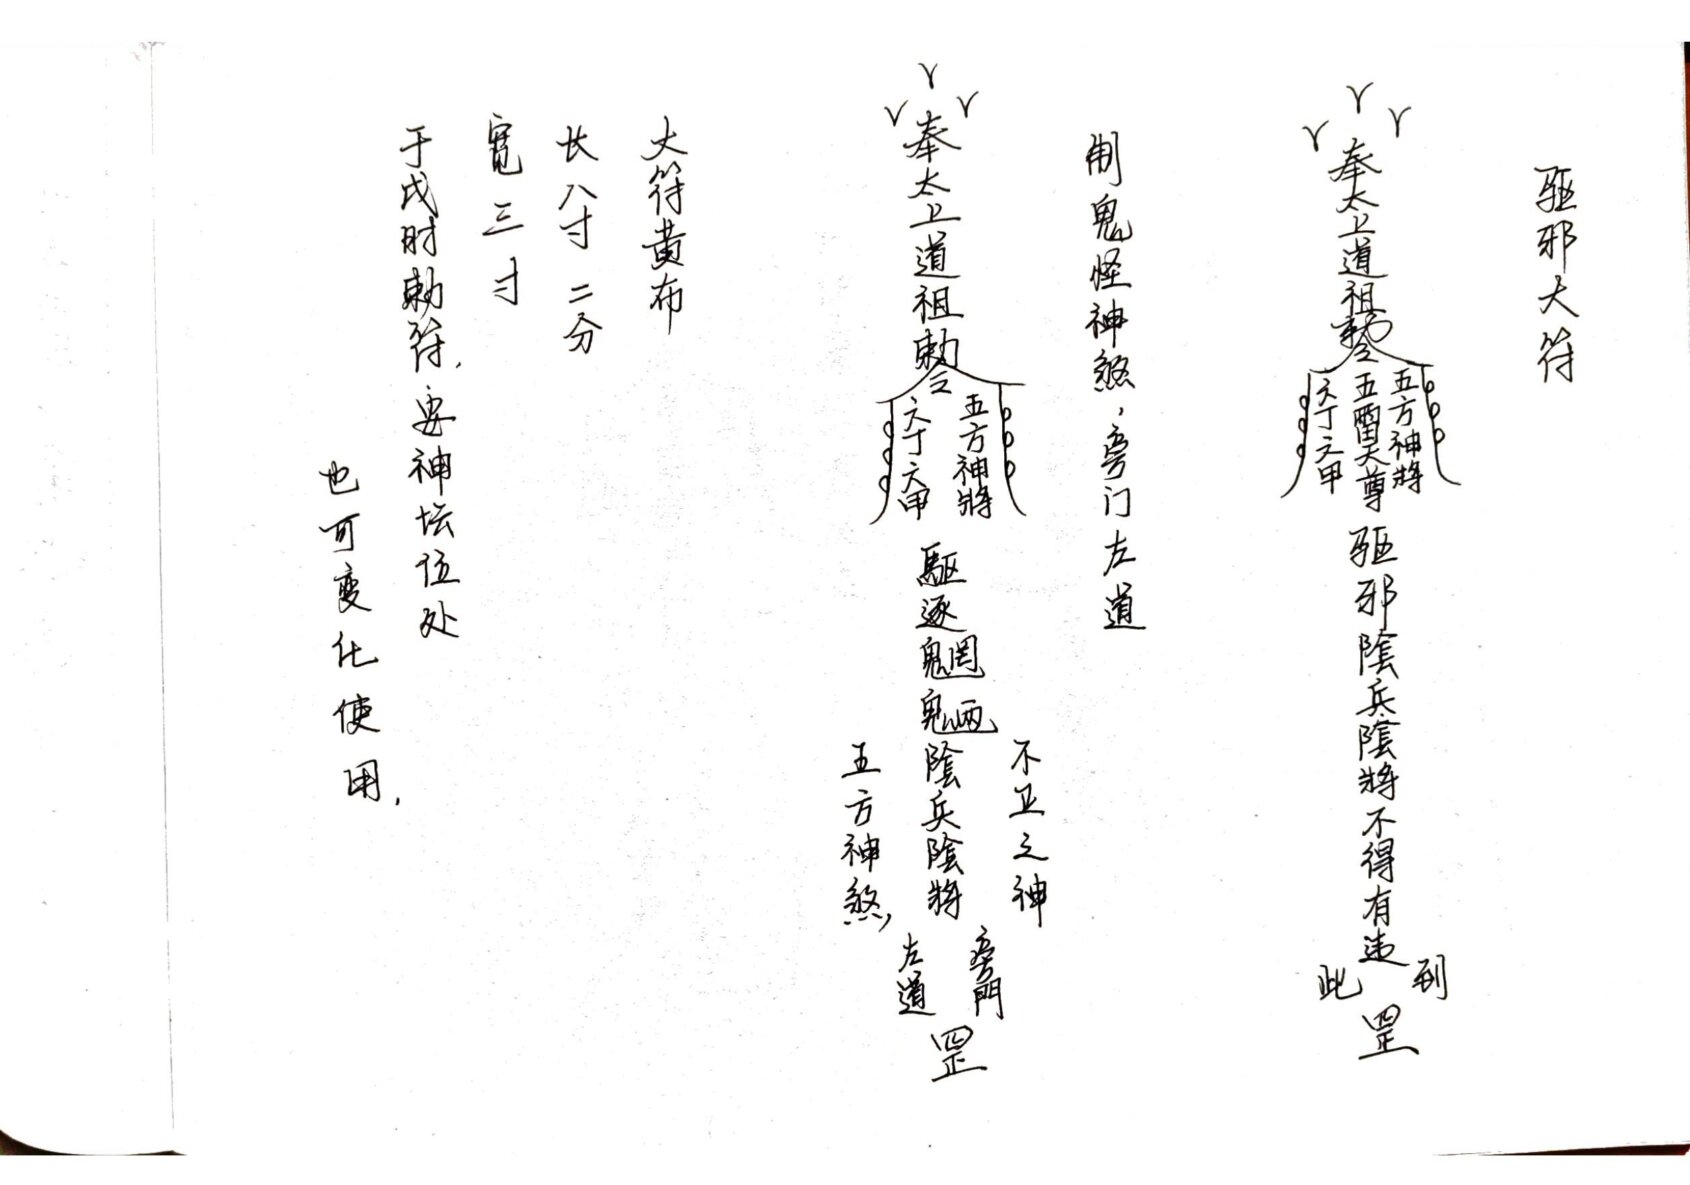 驱邪大符
奉太上道祖勅令
五方神將
五雷天尊
六丁六甲
驱邪陰兵陰將不得有违
到此
罡
制鬼怪神煞，旁门左道
奉太上道祖勅令
五方神將
六丁六甲
驅逐魍魎陰兵陰將
不正之神
五方神煞，
旁門
左道
罡
大符黄布
长八寸二分
寬三寸
于戌时勅符，安神坛伍处
也可变化使用，